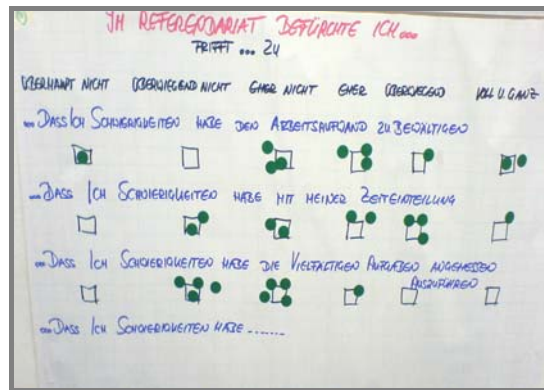 IM REFERENDARIAT BEFÜRCHTE ICH...
TRIFFT ... ZU
ÜBERHAUPT NICHT ÜBERWIEGEND NICHT EHER NICHT EHER ÜBERWIEGEND VOLL U. GANZ
...DASS ICH SCHWIERIGKEITEN HABE DEN ARBEITSAUFWAND ZU BEWÄLTIGEN
...DASS ICH SCHWIERIGKEITEN HABE MIT MEINER ZEITEINTEILUNG
...DASS ICH SCHWIERIGKEITEN HABE DIE VIELFÄLTIGEN AUFGABEN ANGEMESSEN
AUSZUFÜHREN
...DASS ICH SCHWIERIGKEITEN HABE ........